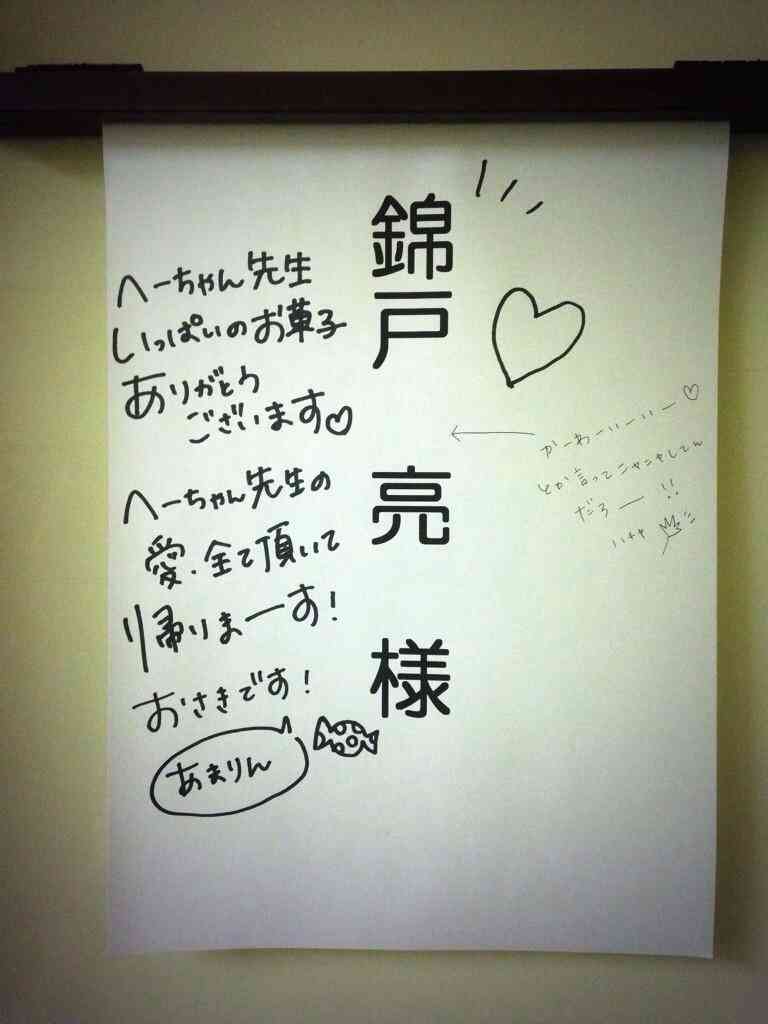 錦戸 亮 様
へーちゃん先生
いっぱいのお菓子
ありがとう
ございます♡
へーちゃん先生の
愛、全て頂いて
帰りまーす!
おさきです!
あまりん
かーわーいーいー♡
とか言ってニヤニヤしてん
だろー!!